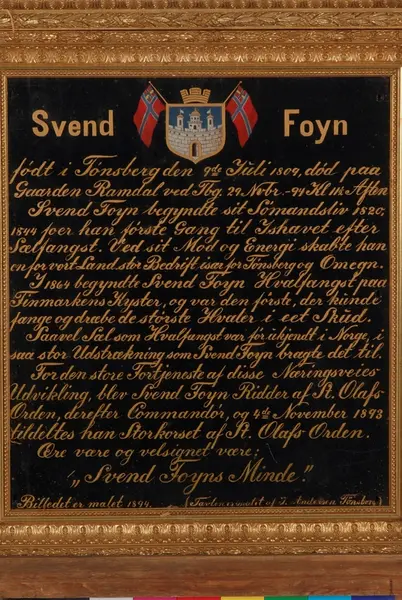 Svend Foyn
født i Tønsberg den 9de Juli 1809, død paa
Gaarden Ramdal ved Tbg. 29. Novbr. -94 Kl 11¼ Aften
Svend Foyn begyndte sit Sömandsliv 1820,
1844 foer han første Gang til Ishavet efter
Sælfangst. Ved sit Mod og Energi skabte han
en for vort Land stor Bedrift især for Tønsberg og Omegn.
I 1864 begyndte Svend Foyn Hvalfangst paa
Finmarkens Kyster, og var den første, der kunde
fange og dræbe de største Hvaler i eet Skud.
Saavel Sæl som Hvalfangst var før ukjendt i Norge, i
saa stor Udstrækning som Svend Foyn bragte det til.
For den store Fortjeneste af disse Næringsveies
Udvikling, blev Svend Foyn Ridder af St. Olafs
Orden, derefter Commandør, og 4de November 1893
tildeltes han Storkorset af St. Olafs Orden.
Ære være og velsignet være:
„Svend Foyns Minde".
Billedet er malet 1894. (Tavlen er malt af J. Andersen Tønsberg)